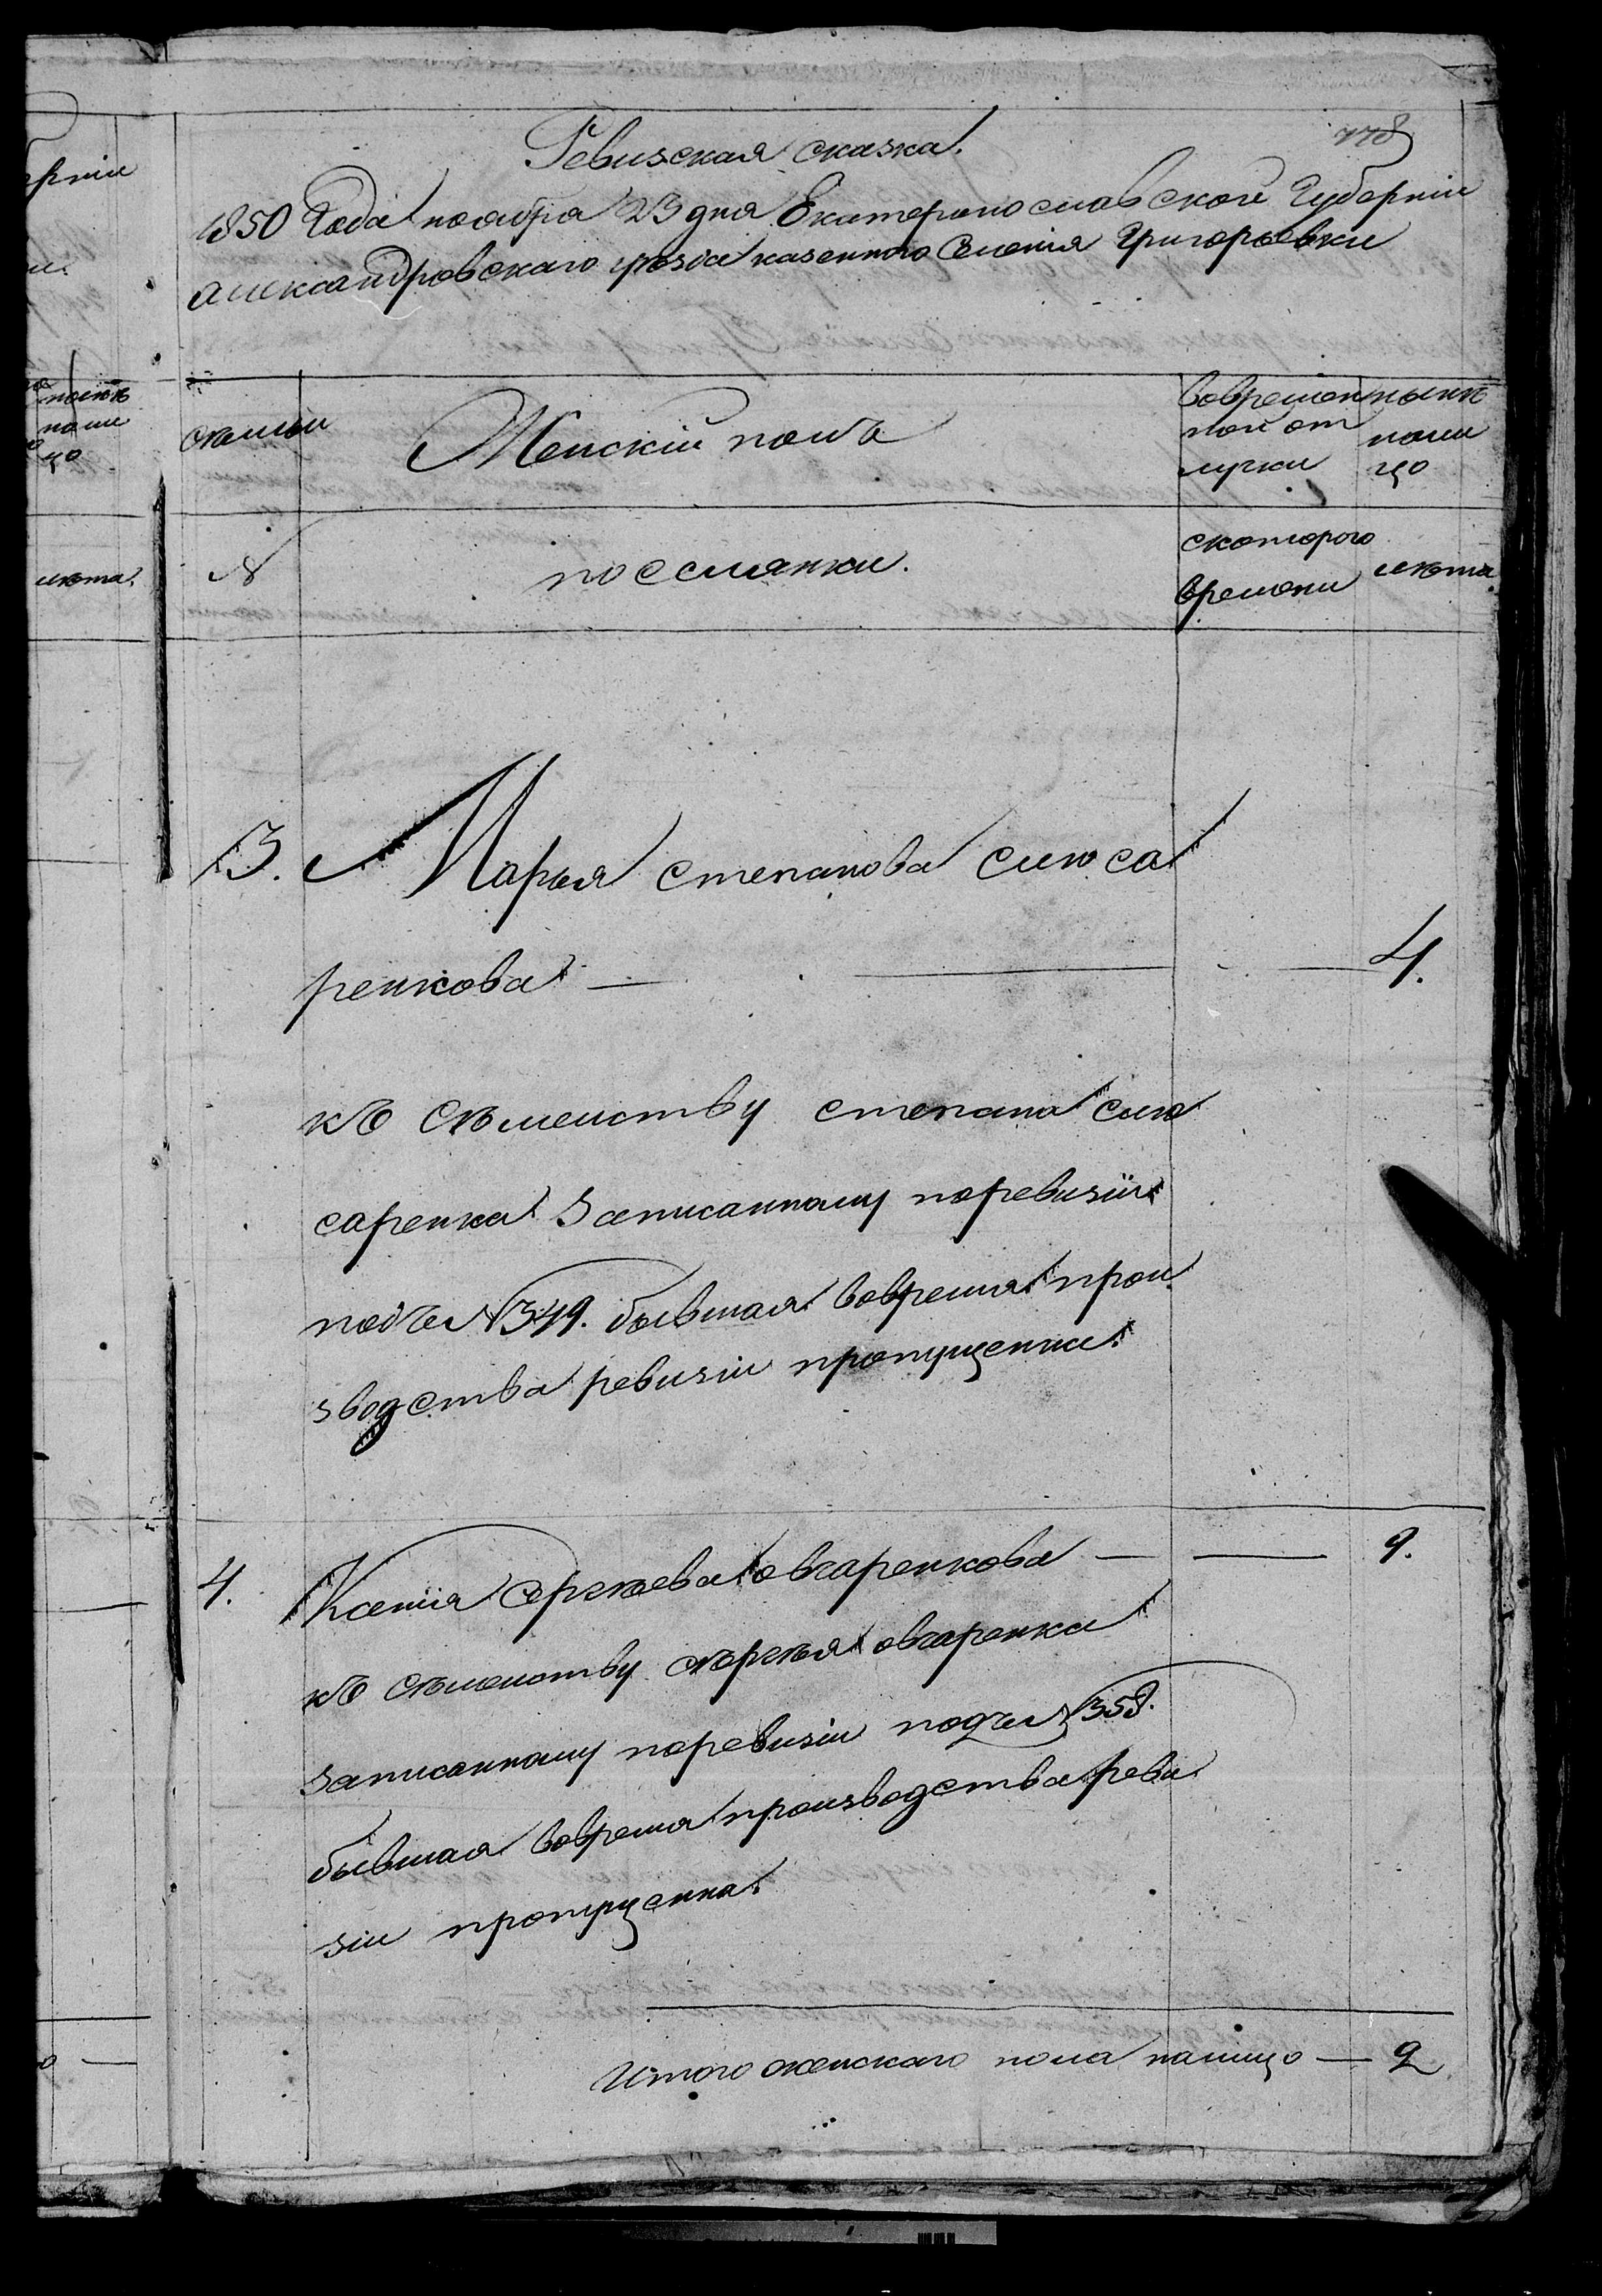 778
Ревизская сказка.
1850 Года ноября 23 дня Екатеринославской Губерніи
Александровскаго уѣзда казеннаго Селенія Григорьевки
Семьи
Женскій полъ
Вовремен
ной от
лучки
нынѣ
нали
цо
№
поселянки.
скоторого
времени
лѣта.
3. Марья степанова слюса
ренкова — 4.
къ Сѣмейству степана слю
саренка записанному поревизіи
подъ № 349. бывшая вовремя прои
зводства ревизіи пропущенна.
4. Ксенія Сергѣева овчаренкова — 9.
къ Сѣмейству сергѣя овчаренка
записанному поревизіи подъ № 358.
бывшая вовремя производства реви
зіи пропущенна.
Итого женскаго пола налицо — 2
рніи
нали
цо
лѣта.